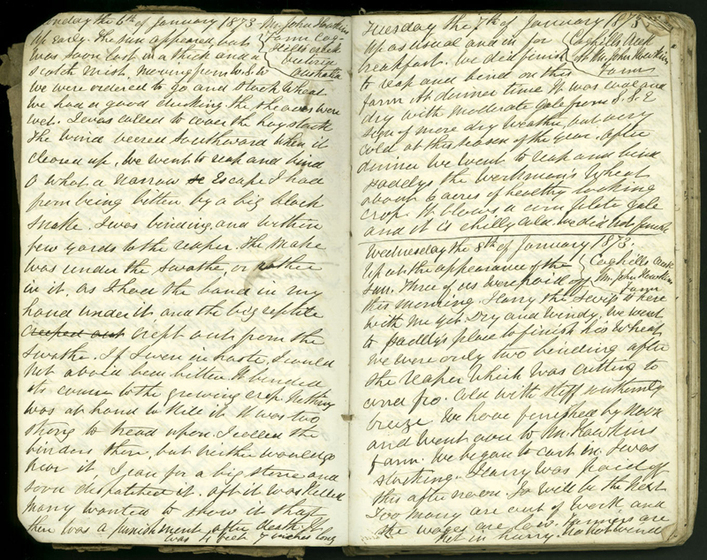 Monday the 6th of January 1873 Mr John Hawkins
Up early. The sun appeared but Farm Cog
was soon lost in a thick and a hills creek
Scotch mist moving from W.S.W Victoria
Australia
we were ordered to go and stook wheat
we had a good ducking the sheaves were
wet. I was called to cover the haystack
The wind veered Southward when it
cleared up. We went to reap and bind
O what a narrow Escape I had
from being bitten by a big black
snake. I was binding and within
few yards to the reaper. The snake
was under the swathe, or rather
in it, as I had the band in my
hand under it and the big reptile
creeped out crept out from the
swathe. If I even in haste I could
not avoid been bitten. It
its come to the growing crop. Nothing
was at hand to kill it. It was too
strong to tread upon. I called the
binders there, but neither would go
near it. I ran for a big stone and
soon dispatched it. aft it was killed
many wanted to show it that
there was a punishment after death. It
was 4 feet 7 inches long
Tuesday the 7th of January 1873
Up as usual and in for Coghills Creek
breakfast. We did finish At Mr John Hawkins
to reap and bind on this Farm
farm at dinner time. It was cool and
dry with moderate gale from S.S.E
sign of more dry weather but very
cold at this season of the year. After
dinner we went to reap and bind
Paddys the workman's wheat
about 6 acres of healthy looking
crop. It blows a complete gale
and it is chilly cold. we did not finish
Wednesday the 8th of January 1873.
Up at the appearance of the Coghills Creek
Sun. Three of us were paid off Mr John Hawkins
this morning. Harry the Swiss is here Farm
with me yet. Dry and Windy. We went
to Paddy's place to finish his wheat
we were only two binding after
the reaper which was cutting to
and fro. Cold with stiff southerly
breeze. We have finished by Noon
and went over to Mr. Hawkins
Farm. We began to cart in. I was
stacking. Harry was paid off
this afternoon. So will be the next
Too many are out of work and
the wages are low. Farmers are
not in hurry. no hot winds